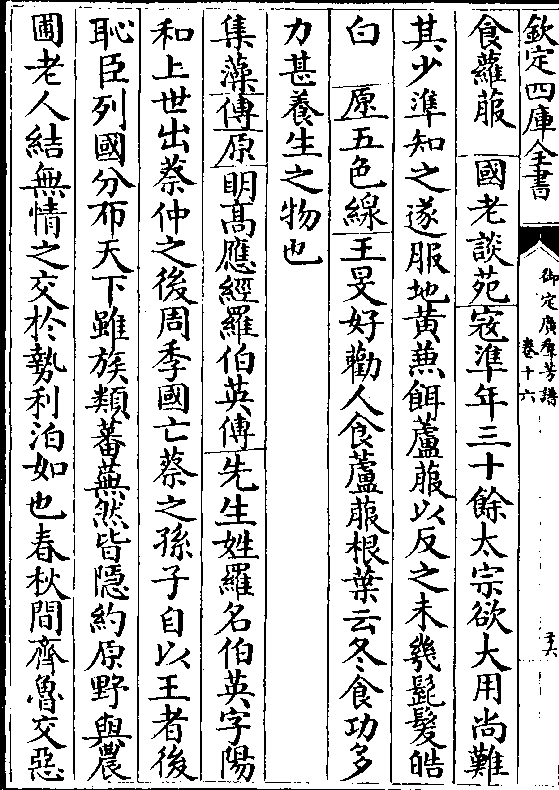 欽定四庫全書
御定廣羣芳譜
卷十六
食蘿菔　國老談苑寇準年三十餘太宗欲大用尚難
其少準知之遂服地黃蒸餌蘆菔以反之未幾髭髮皓
白　原五色線王旻好勸人食蘆菔根葉云冬食功多
力甚養生之物也
集藻傳原明高應經羅伯英傳先生姓羅名伯英字陽
和上世出蔡仲之後周季國亡蔡之孫子自以王者後
恥臣列國分布天下雖族類蕃蕪然皆隱約原野與農
圃老人結無情之交於勢利泊如也春秋間齊魯交惡